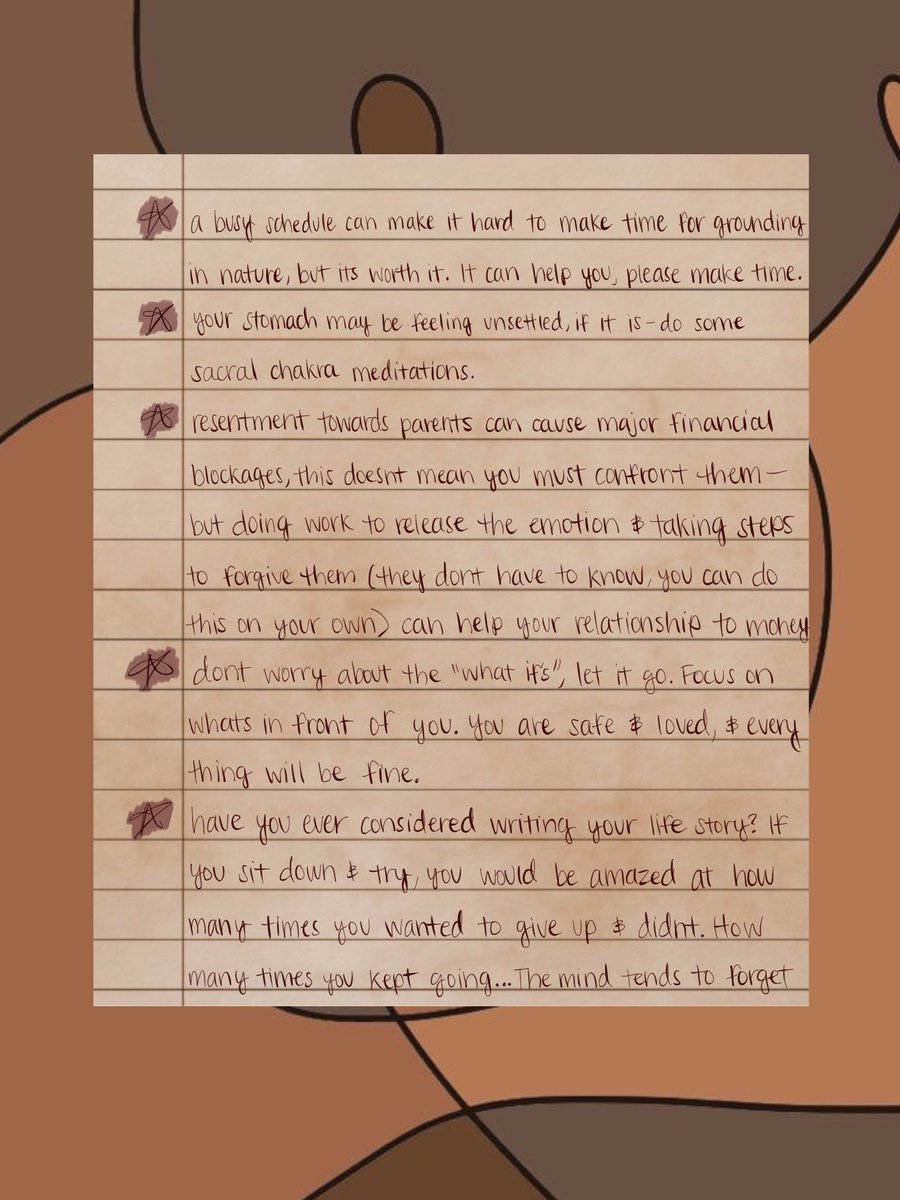 a busy schedule can make it hard to make time for grounding
in nature, but its worth it. It can help you, please make time.
your stomach may be feeling unsettled, if it is - do some
sacral chakra meditations.
resentment towards parents can cause major financial
blockages, this doesnt mean you must confront them —
but doing work to release the emotion & taking steps
to forgive them (they dont have to know, you can do
this on your own) can help your relationship to money
dont worry about the "what if's", let it go. Focus on
whats in front of you. You are safe & loved, & every
thing will be fine.
have you ever considered writing your life story? If
you sit down & try, you would be amazed at how
many times you wanted to give up & didnt. How
many times you kept going... The mind tends to forget